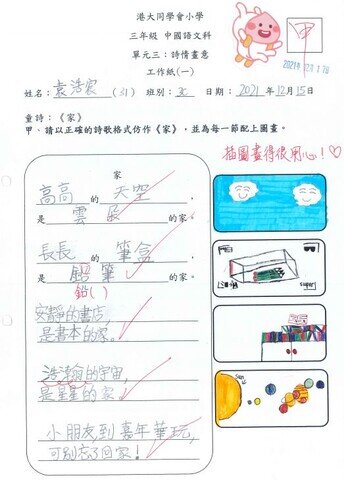 港大同學會小學
三年級 中國語文科
單元三：詩情畫意
工作紙(一)
甲
2021年12月17日
姓名：袁浩宸 (31) 班別：3C 日期：2021年12月15日
童詩：《家》
甲、請以正確的詩歌格式仿作《家》，並為每一節配上圖畫。
插圖畫得很用心！
家
高高 的 天空，
是 雲 的家。
長長 的 筆盒，
是 鉛筆 的家。
鉛( )
安靜的書店，
是書本的家。
浩瀚的宇宙，
是星星的家。
小朋友到嘉年華玩，
可別忘了回家！
super